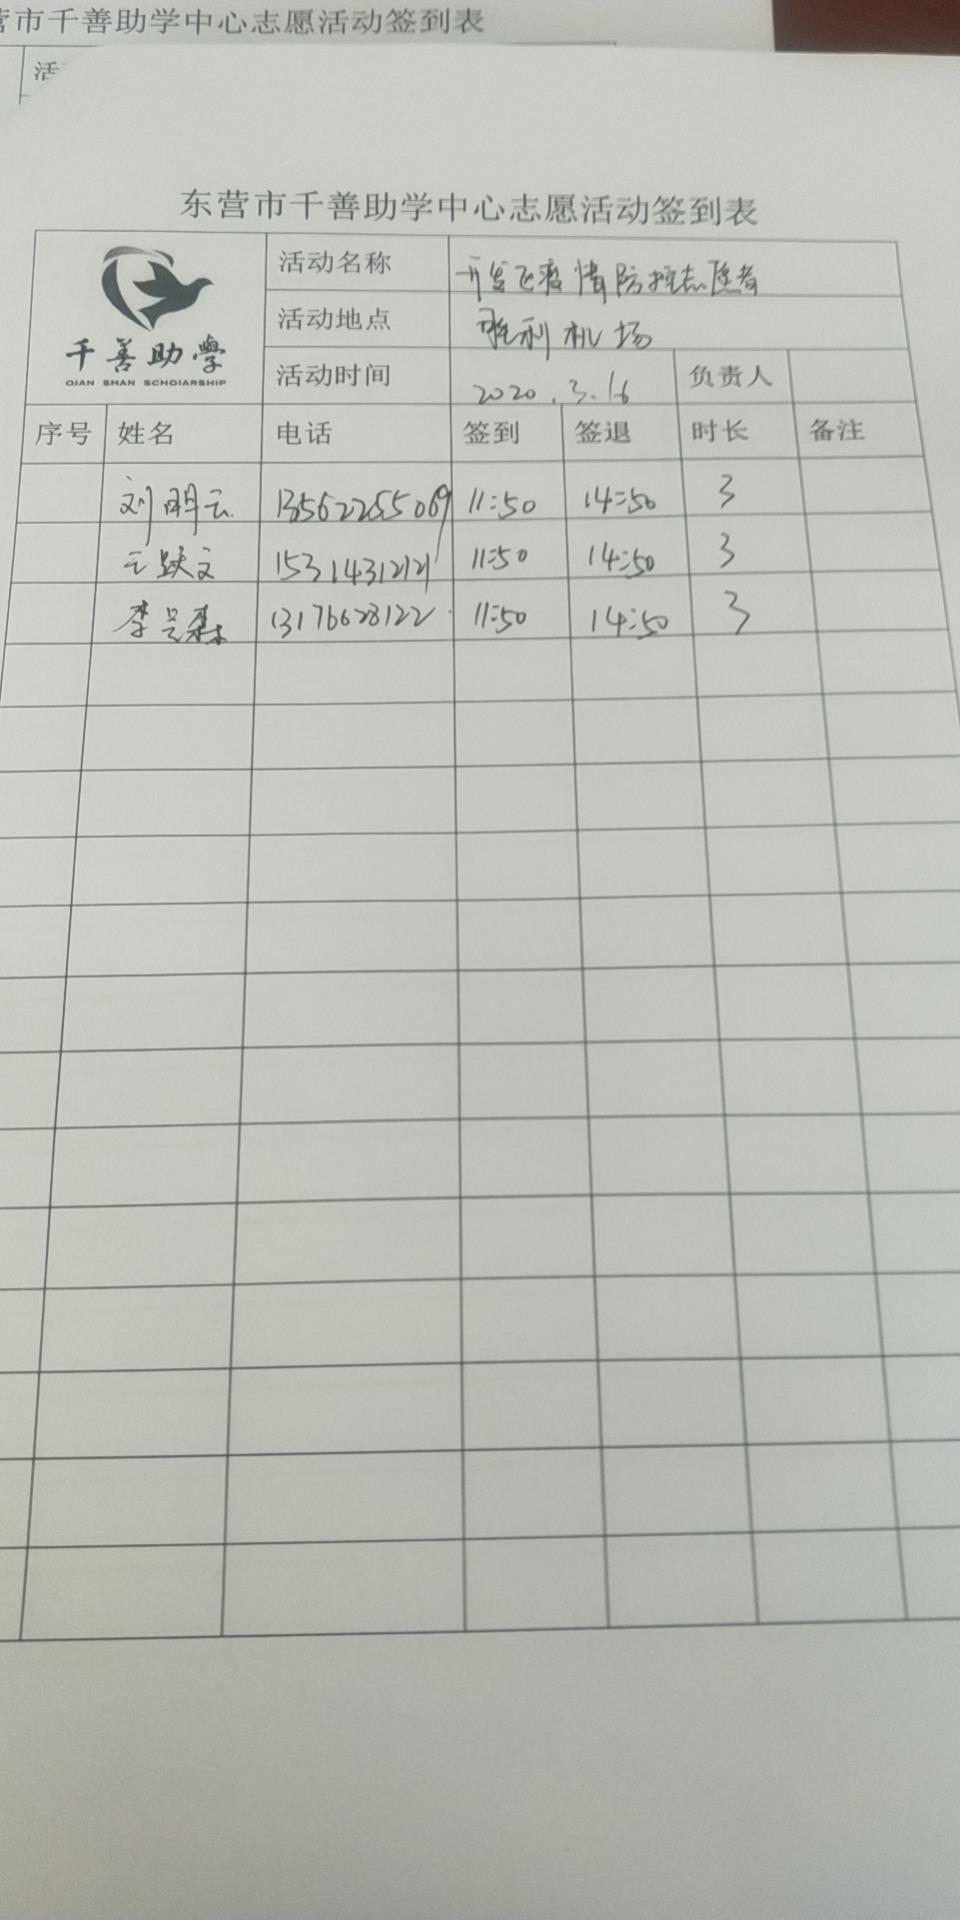 营市千善助学中心志愿活动签到表
活
东营市千善助学中心志愿活动签到表
千善助學
QIAN SHAN SCHOIARSHIP
活动名称 开发区疫情防控志愿者
活动地点 胜利机场
活动时间 2020.3.16 负责人
序号 姓名 电话 签到 签退 时长 备注
刘明云 13562255069 11:50 14:50 3
王跃文 15314312121 11:50 14:50 3
李 森 13176628122 11:50 14:50 3